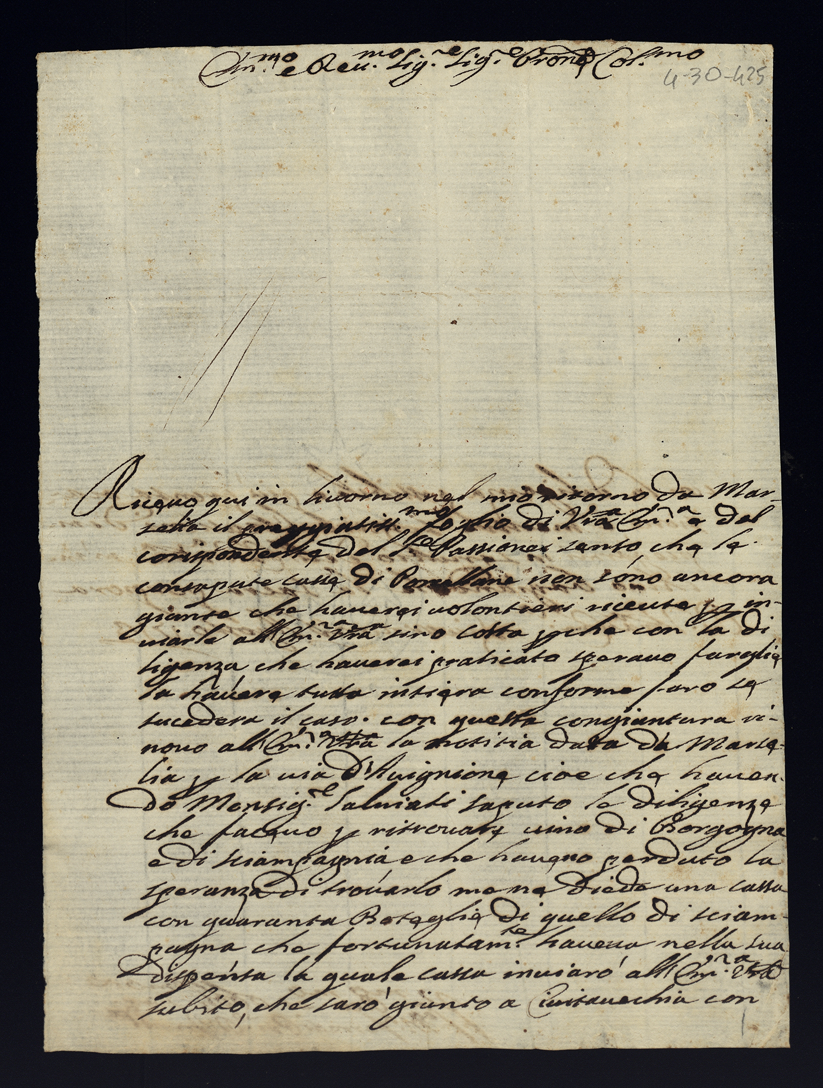 Em.mo e Reu.mo Sig.re Sig.re Prone Col.mo
4-30-425
Riceuo qui in liuorno nel mio ritorno da Mar-
selia il preggiatiss.mo foglio di Vra Em.a e del
corispondente del S.re Passionei sento che le
consapute casse di Porcellane non sono ancora
giunte che hauerei volontieri riceute p in-
uiarle all Em.a Vra sino costa p che con la di
ligenza che hauerei praticato sperauo fargliela
la hauere tutta intiera conforme faro se
sucedera il caso. con questa congiuntura ri-
nouo all Em.a Vra la notitia data da Marse-
lia p la uia d'Auignione cioe che hauen-
do Monsig.re Saluiati saputo le diligenze
che faceuo p ritrouare uino di Borgogna
e di sciampagnia e che haueuo perduto la
speranza di trouarlo me ne diede una cassa
con quaranta Boteglie di quello di sciam-
pagna che fortunatam.te haueua nella sua
dispensa la quale cassa inuiaro all Em.a Vra
subito, che saro giunto a Ciuitauechia con